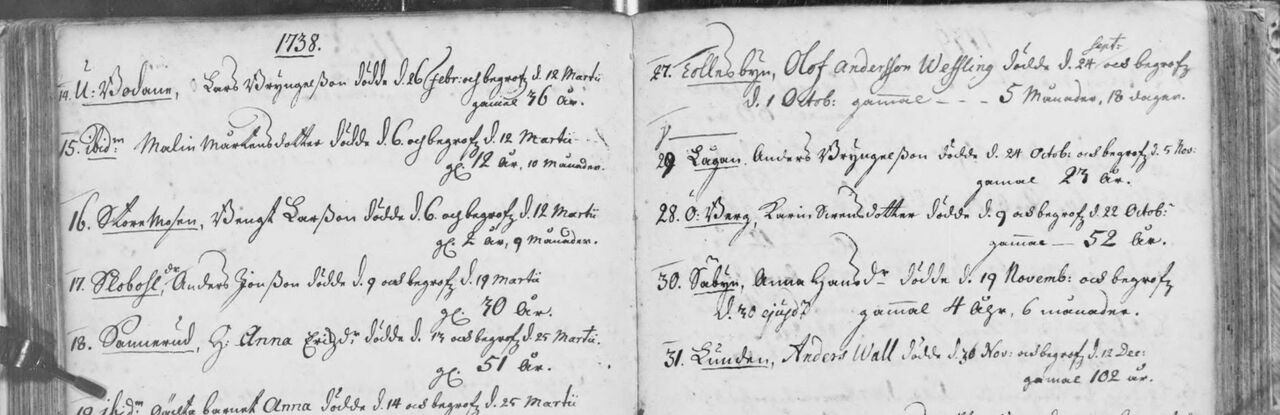 1738.
14. U: Bodane, Lars Bryngelsson dödde d. 26 Febr: och begrofz d. 12 Martii
gamal 36 År.
15. ibidm Malin Mårtensdotter dödde d. 6. och begrofz d. 12 Martii
gl. 12 År, 10 Månader.
16. Store Mosen, Bengt Larsson dödde d. 6. och begrofz d. 12 Martii
gl. 2 År, 9 Månader.
17. Slobohl, dr Anders Jonsson dödde d. 9 och begrofz d. 19 Martii
gl. 30 År.
18. Sannerud, H: Anna Ericsdr dödde d. 13 och begrofz d. 25 Martii.
gl. 51 År.
19. ibidm barnet Anna dödde d. 14 och begrofz d. 25 Martii
27. Tollesbyn, Olof Andersson Wessling dödde d. 24 Sept: och begrofz
d. 1 Octob: gammal - - - 5 Månader, 18 dagar.
29 Lågan, Anders Bryngelsson dödde d. 24 Octob: och begrofz d. 5 Nov:
gamal 23 År.
28. Ö: Berg, Karin Svensdotter dödde d. 9 och begrofz d. 22 Octob:
gammal — 52 År.
30. Säbyn, Anna Hansdr dödde d. 19 Novemb: och begrofz
d. 30 ejusd: gammal 4 Åhr, 6 månader.
31. Lunden, Anders Wall dödde d. 30 Nov: och begrofz d. 12 Dec:
gamal 102 år.